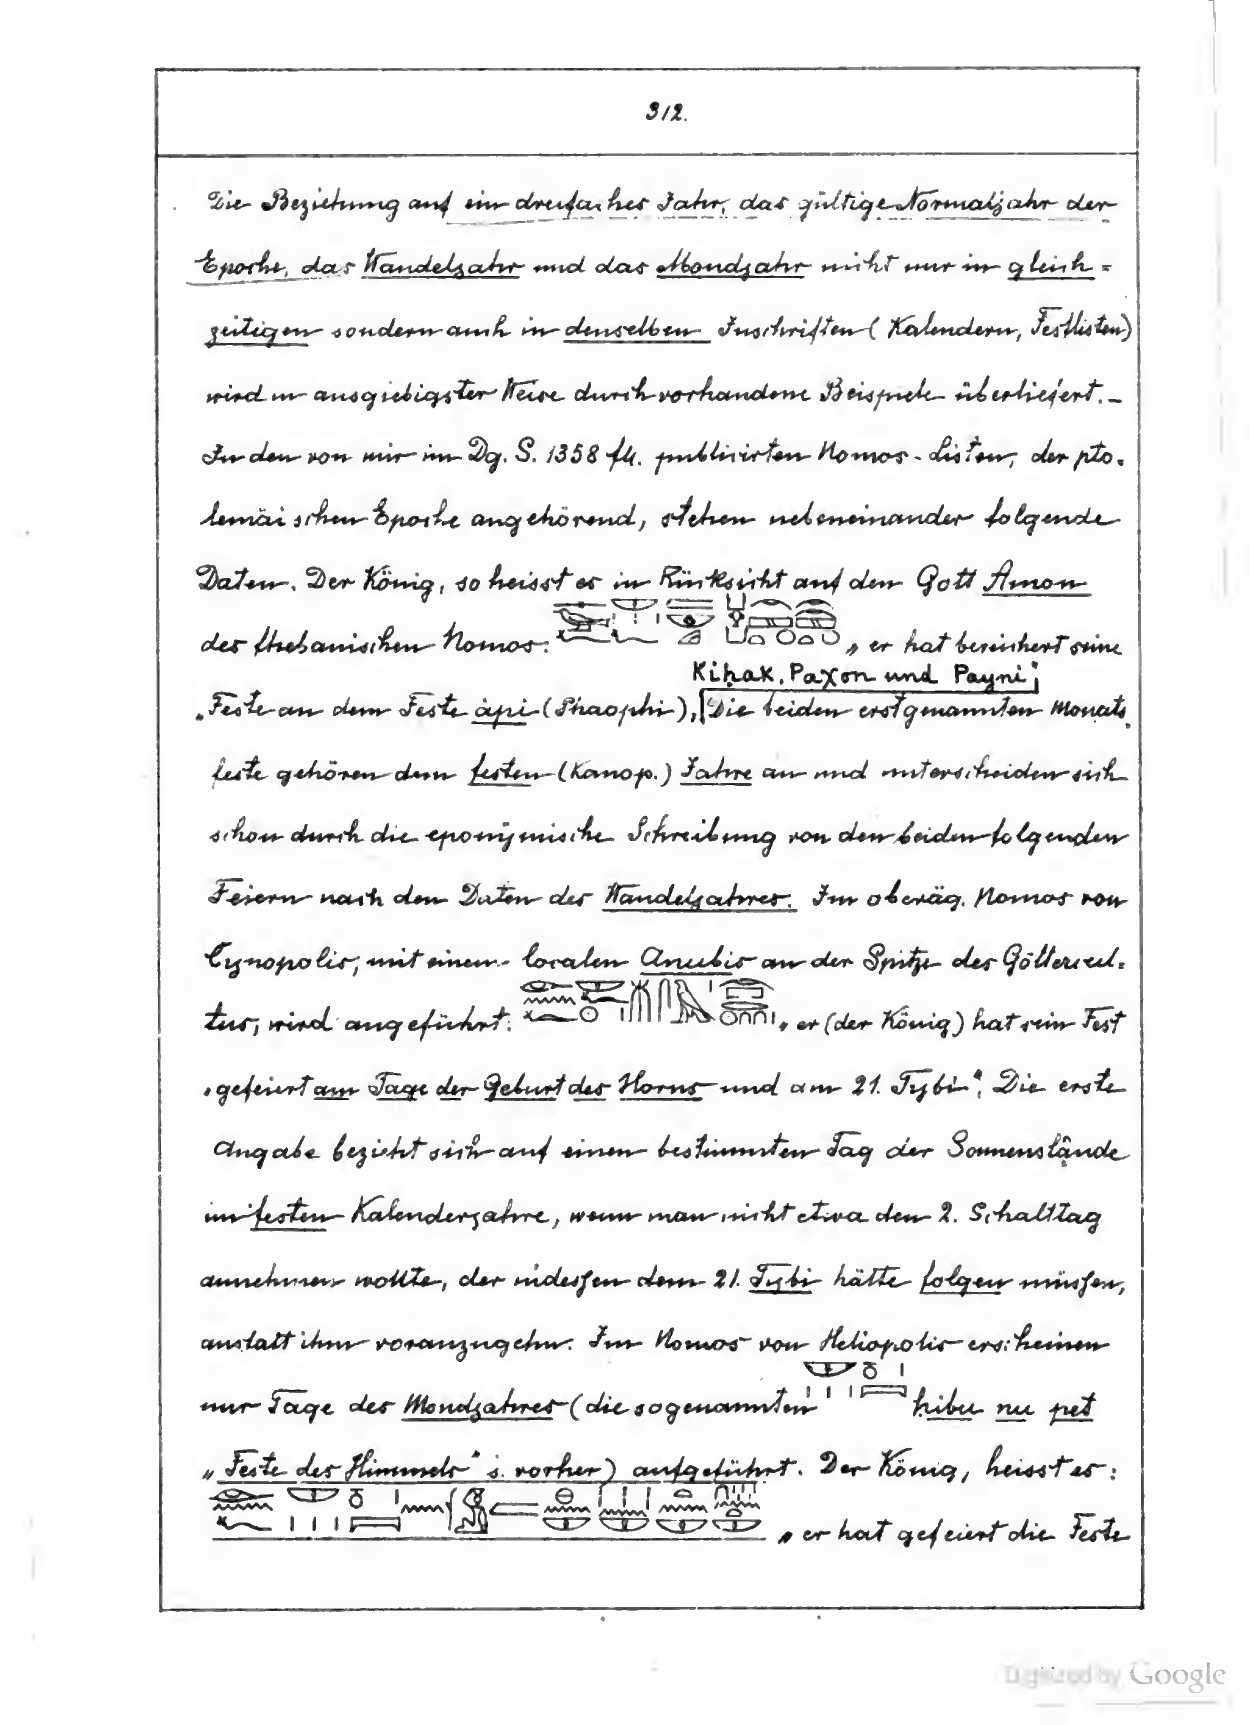 312.
Die Beziehung auf ein dreifaches Jahr, das gültige Normaljahr der
Epoche, das Wandeljahr und das Mondjahr nicht nur in gleich=
zeitigen sondern auch in denselben Inschriften (Kalendern, Festlisten)
wird in ausgiebigster Weise durch vorhandene Beispiele überliefert. –
In den von mir im Dg. S. 1358 fll. publicirten Nomos-Listen, der pto-
lemäischen Epoche angehörend, stehen nebeneinander folgende
Daten. Der König, so heisst es in Rücksicht auf den Gott Amon
des thebanischen Nomos: „er hat bereichert seine
Kihak, Paχon und Payni;
„Feste an dem Feste àpi (Phaophi), Die beiden erstgenannten Monats-
feste gehören dem festen (Kanop.) Jahre an und unterscheiden sich
schon durch die eponymische Schreibung von den beiden folgenden
Feiern nach den Daten des Wandeljahres. Im oberäg. Nomos von
Cynopolis, mit einem localen Anubis an der Spitze des Göttercul-
tus, wird angeführt: „er (der König) hat sein Fest
„gefeiert am Tage der Geburt des Horus und am 21. Tybi“. Die erste
Angabe bezieht sich auf einen bestimmten Tag der Sonnenstände
im festen Kalenderjahre, wenn man nicht etwa den 2. Schalttag
annehmen wollte, der indessen dem 21. Tybi hätte folgen müssen,
anstatt ihm voranzugehn. Im Nomos von Heliopolis erscheinen
nur Tage des Mondjahres (die sogenannten hibu nu pet
„Feste des Himmels“ s. vorher) aufgeführt. Der König, heisst es:
„er hat gefeiert die Feste
Digitized by Google